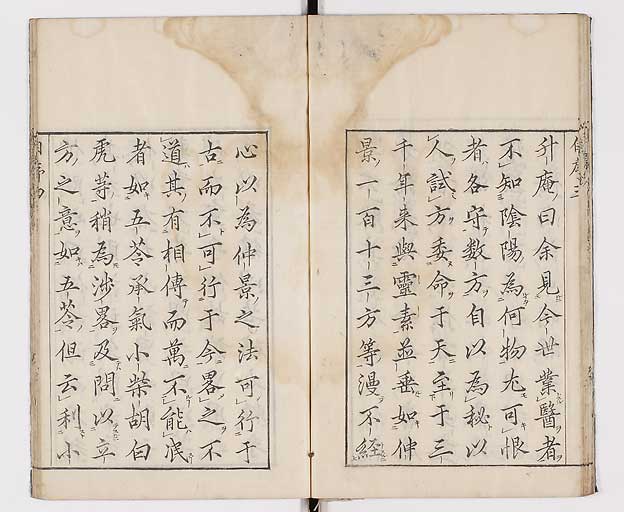 升庵曰余見今世業醫者
不知陰陽為何物尤可恨
者各守數方自以為秘以
人試方委命于天至于三
千年来與靈素並垂如仲
景一百十三方等漫不經
心以為仲景之法可行于
古而不可行于今畧之不
道其有相傳而萬不能泯
者如五苓承氣小柴胡白
虎等稍為涉畧及問以立
方之意如五苓但云利小